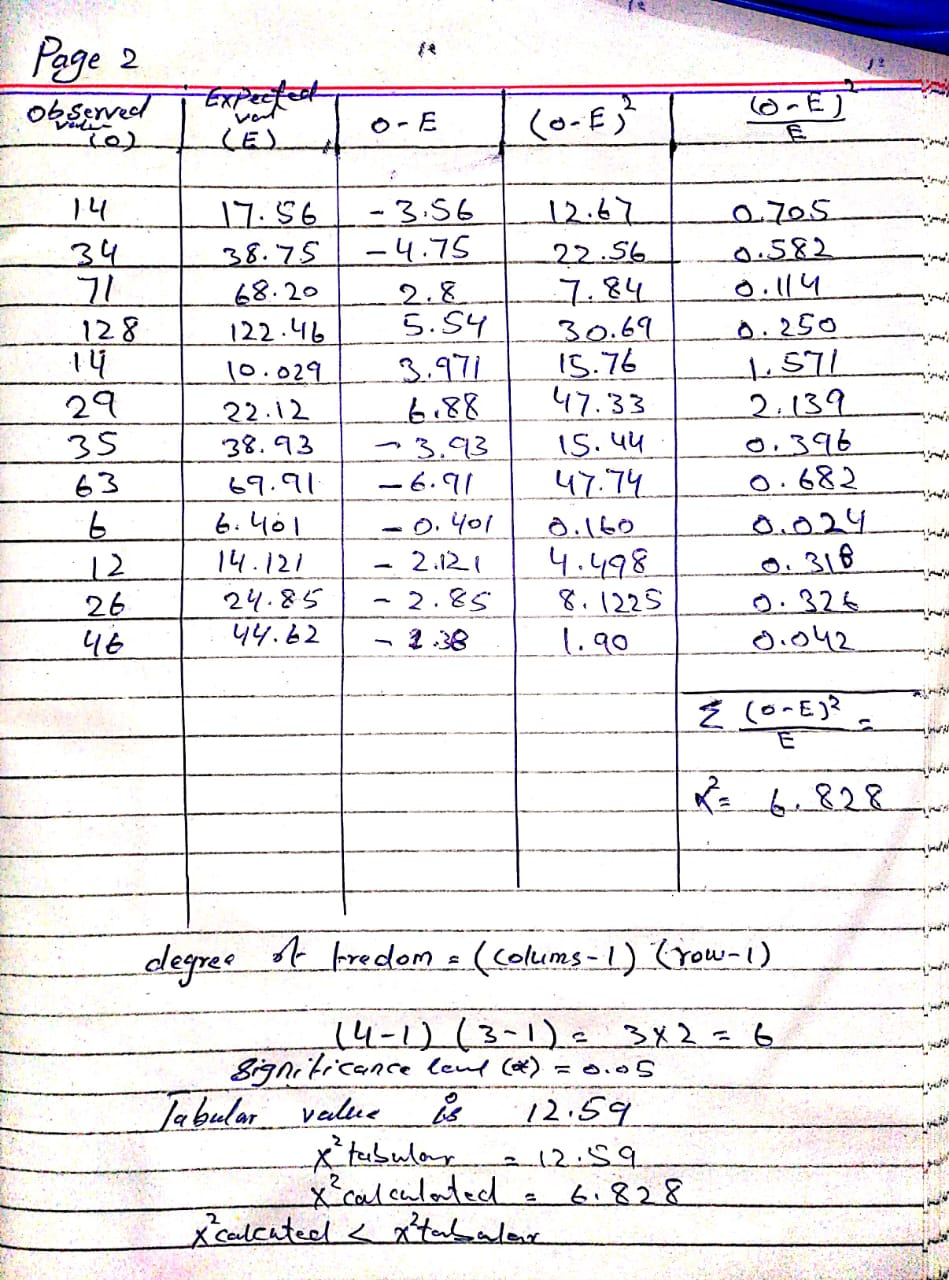 Page 2
Observed value (O) Expected val (E) O-E (O-E)² (O-E)²/E
14 17.56 -3.56 12.67 0.705
34 38.75 -4.75 22.56 0.582
71 68.20 2.8 7.84 0.114
128 122.46 5.54 30.69 0.250
14 10.029 3.971 15.76 1.571
29 22.12 6.88 47.33 2.139
35 38.93 -3.93 15.44 0.396
63 69.91 -6.91 47.74 0.682
6 6.401 -0.401 0.160 0.024
12 14.121 -2.121 4.498 0.318
26 24.85 -2.85 8.1225 0.326
46 44.62 -1.38 1.90 0.042
Σ (O-E)²/E =
x²= 6.828
degree of fredom = (colums-1) (row-1)
(4-1) (3-1) = 3x2 = 6
Significance level (α) = 0.05
Tabular value is 12.59
x² tabular = 12.59
x² calculated = 6.828
x² calcuted < x² tabular